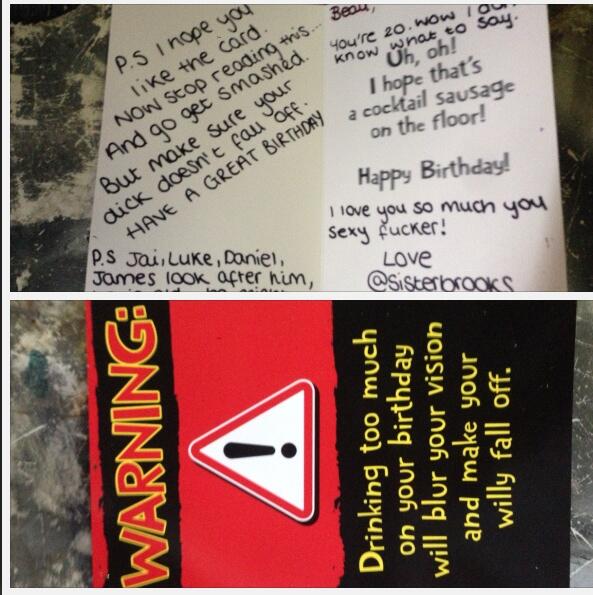 P.S I hope you
like the card.
Now stop reading this...
And go get smashed.
But make sure your
dick doesn't fall off.
HAVE A GREAT BIRTHDAY
P.S Jai, Luke, Daniel,
James look after him,
Beau,
You're 20. Wow I
know what to say.
Uh, oh!
I hope that's
a cocktail sausage
on the floor!
Happy Birthday!
I love you so much you
sexy fucker!
Love
@Sisterbrooks
WARNING:
Drinking too much
on your birthday
will blur your vision
and make your
willy fall off.